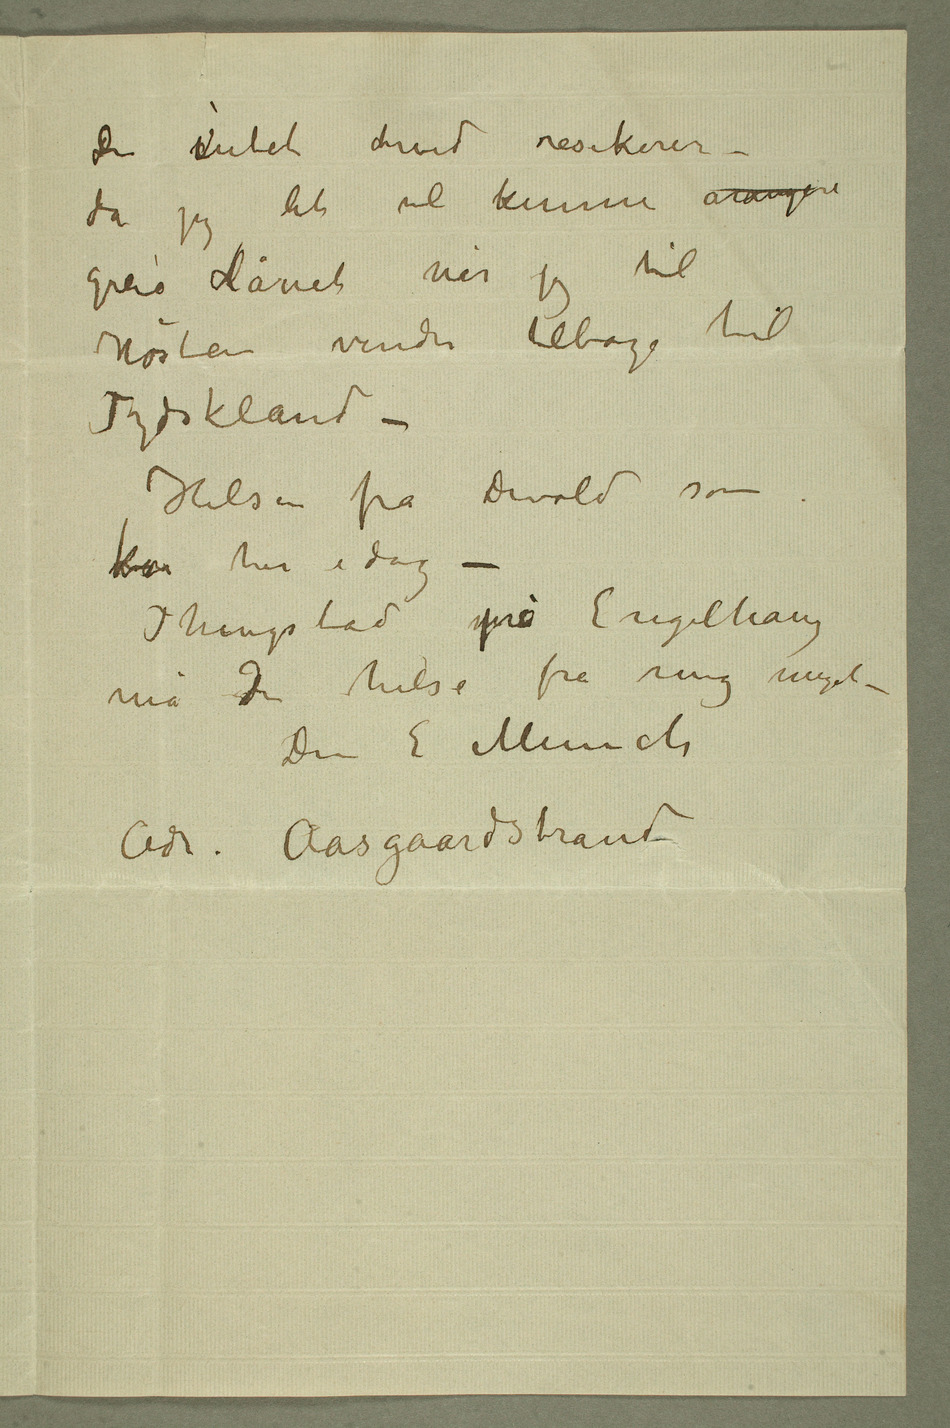 De intet derved resikerer –
da jeg let vil kunne arangere
greie Lånet når jeg til
Høsten vender tilbage til
Tydskland –
Hilsen fra Devold som
kom her idag –
Thingstad på Engelhaug
må De hilse fra mig meget –
Deres E Munch
Adr. Aasgaardstrand